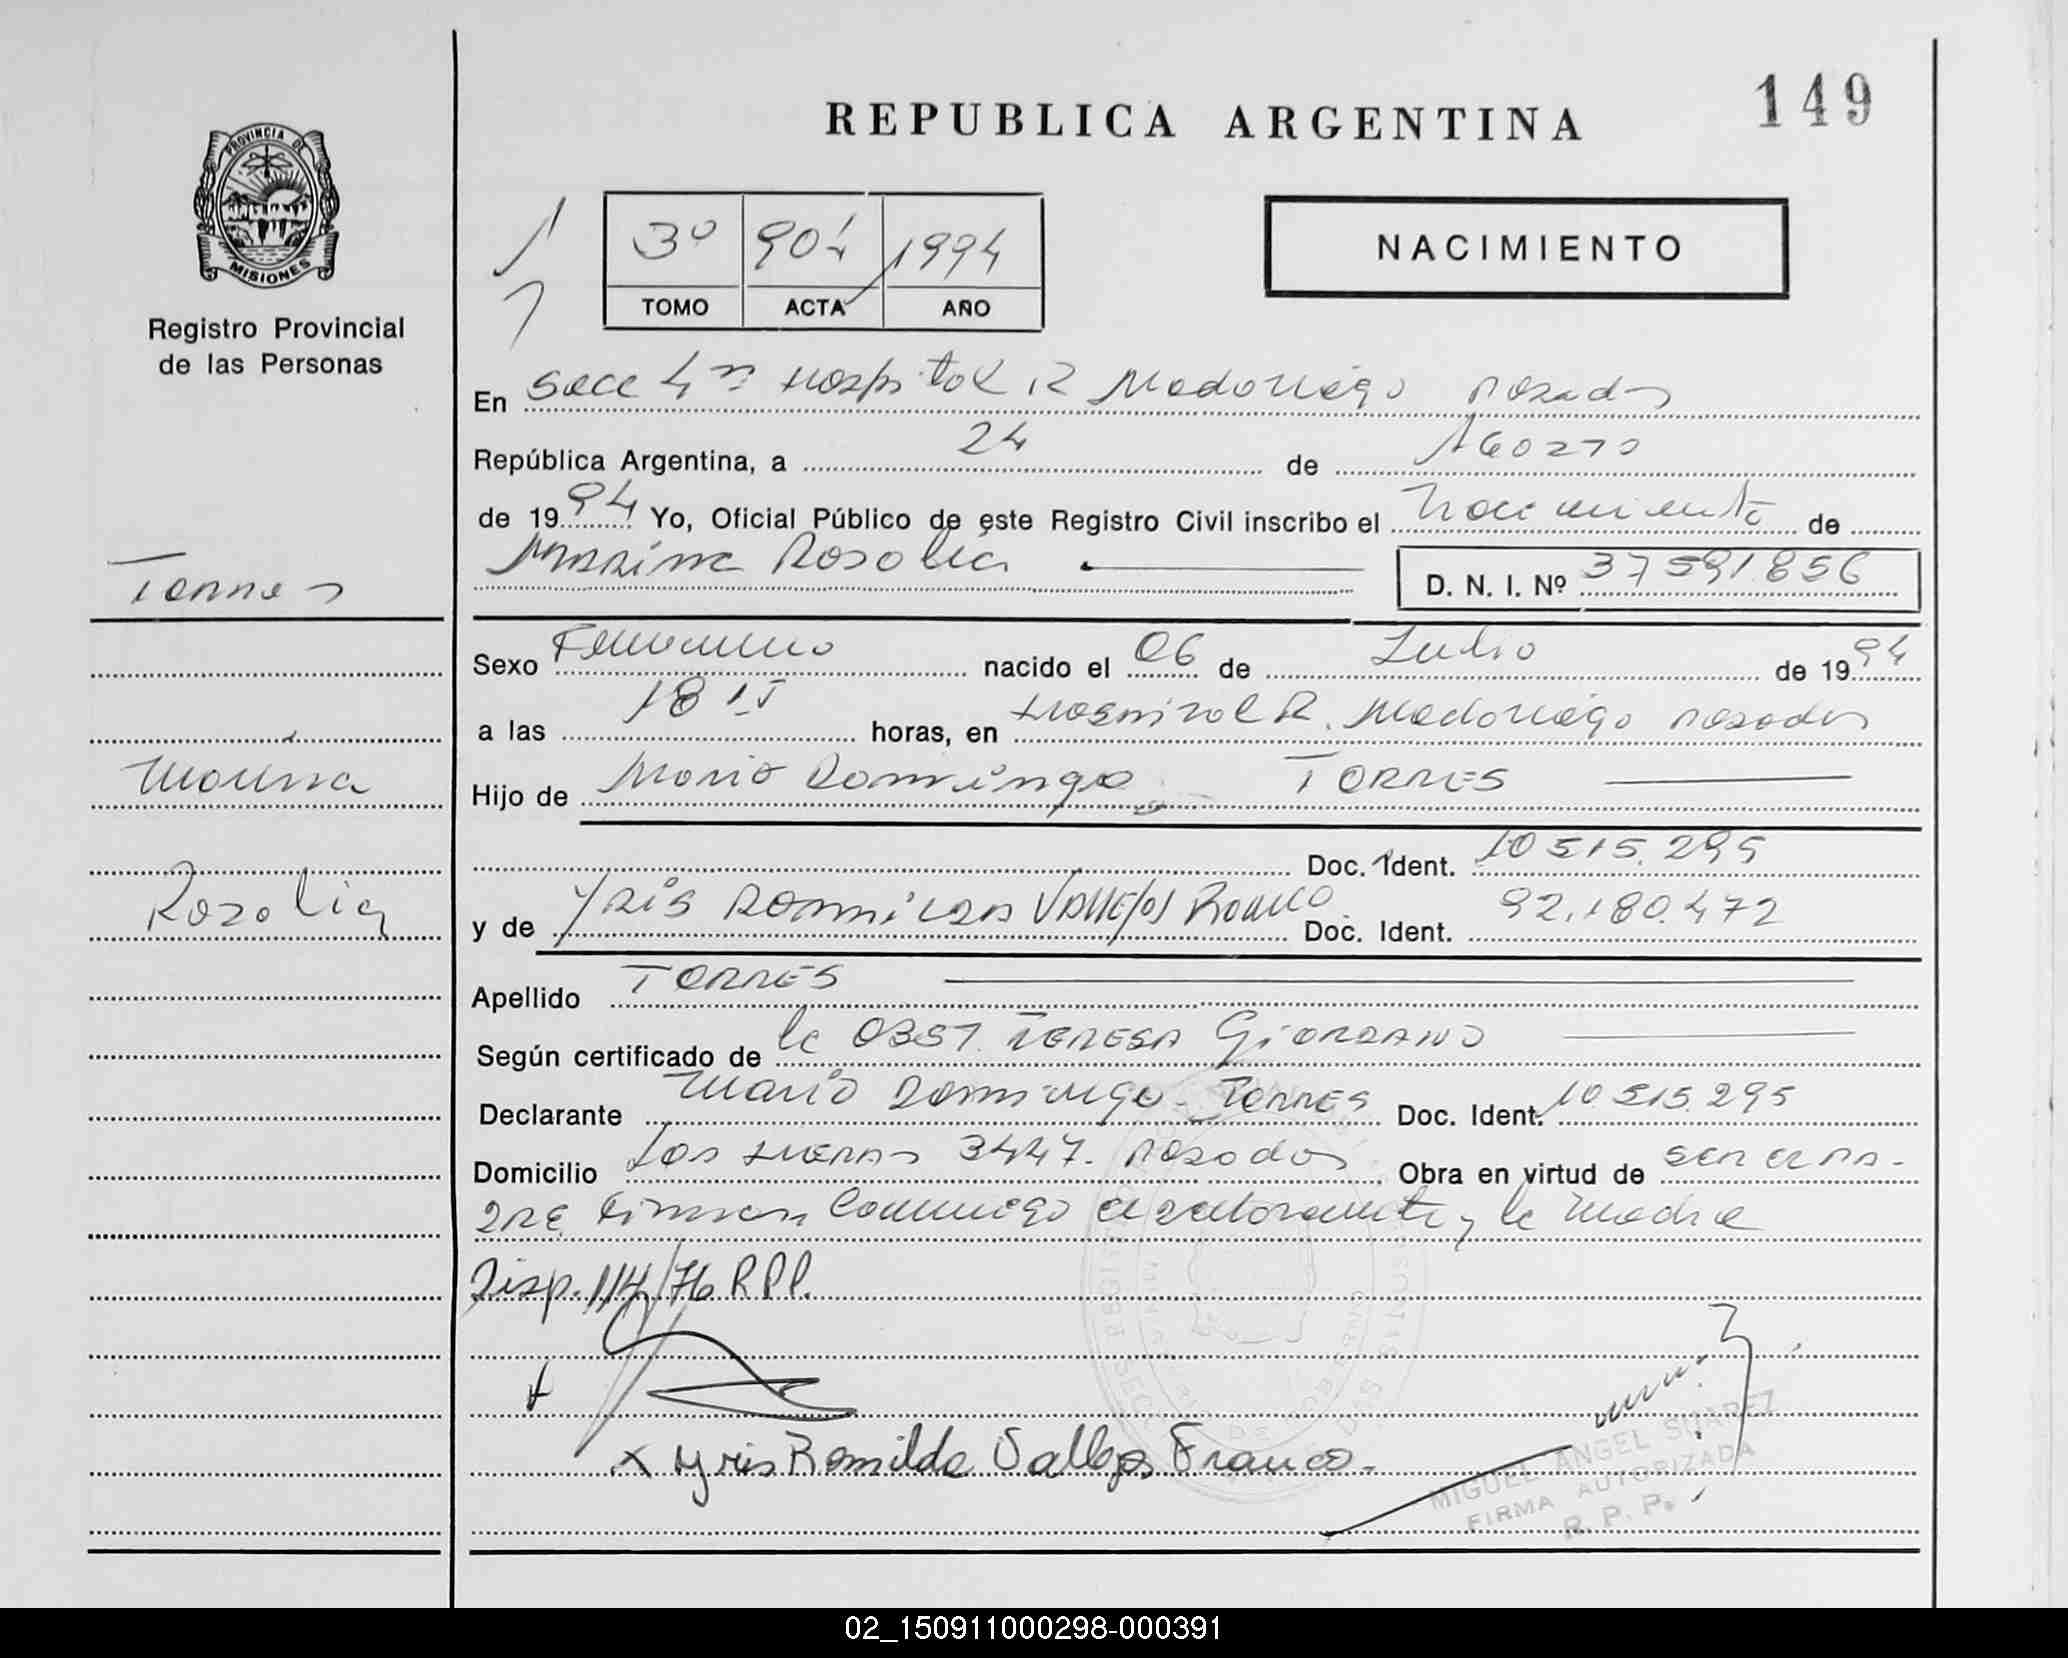 149
REPUBLICA ARGENTINA
PROVINCIA DE
MISIONES
Registro Provincial
de las Personas
3º 904 1994
TOMO ACTA AÑO
NACIMIENTO
En Secc 4ª Hospital R Madariaga Posadas
República Argentina, a 24 de AGOSTO
de 1994 Yo, Oficial Público de este Registro Civil inscribo el Nacimiento de
Marina Rosalia D. N. I. Nº 37591856
Torres
Sexo Femenino nacido el 06 de Julio de 1994
a las 18 15 horas, en Hospital R. Madariaga Posadas
Marina
Hijo de Mario Domingo TORRES
Doc. Ident. 10.515.295
Rosalia
y de Yris Romilda Vallejos Franco Doc. Ident. 92.180.472
Apellido TORRES
Según certificado de la OBST. TERESA GIORDANO
Declarante Mario Domingo Torres Doc. Ident. 10.515.295
Domicilio Las Heras 3447. Posadas Obra en virtud de ser el pa-
dre Firman Conmigo el declarante y la madre
Disp. 114/76 R.P.P.
x Yris Romilda Vallejos Franco.
MIGUEL ANGEL SUAREZ
FIRMA AUTORIZADA
R. P. P.
02_150911000298-000391